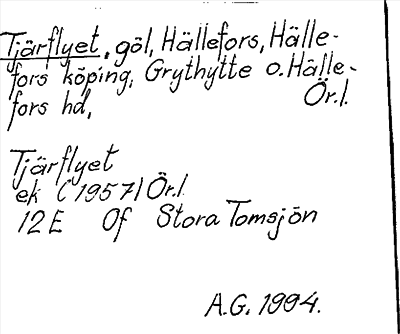 Tjärflyet, göl, Hällefors, Hälle-
fors köping, Grythytte o. Hälle-
fors hd, Ör.l.
Tjärflyet
ek (1957) Ör.l.
12 E Of Stora Tomsjön
A.G. 1994.